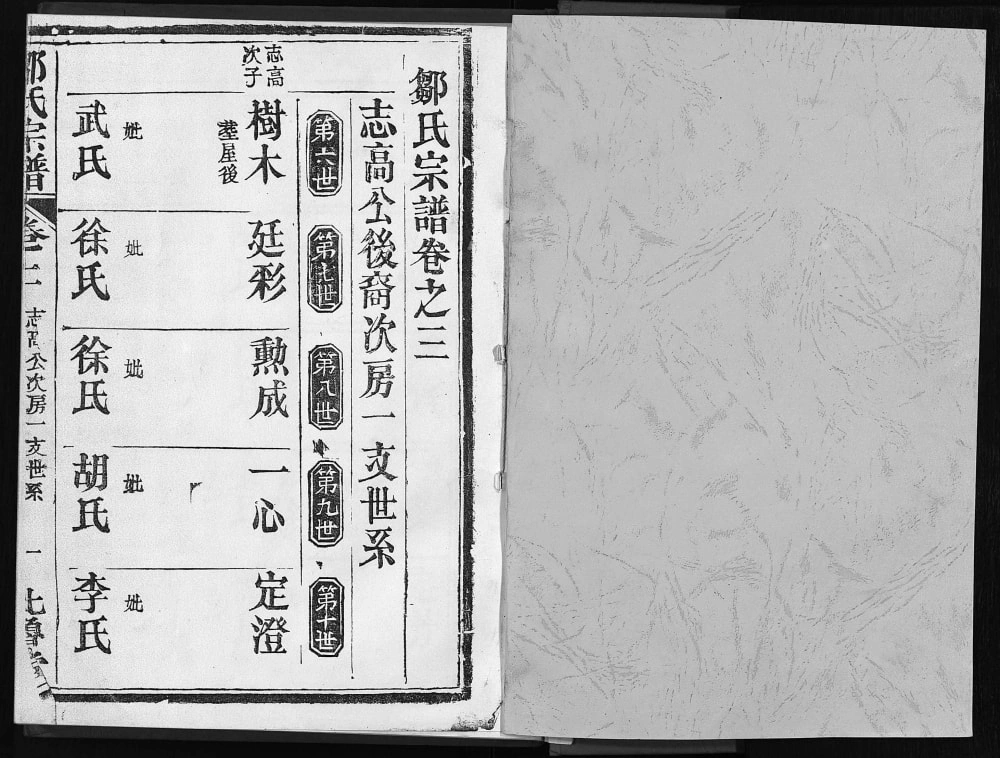 鄒氏宗譜卷之三
志高公後裔次房一支世系
第六世
第七世
第八世
第九世
第十世
志高
次子
樹木
葬屋後
廷彩
勲成
一心
定澄
妣
武氏
妣
徐氏
妣
徐氏
妣
胡氏
妣
李氏
鄒氏宗譜
志高公次房一支世系
一